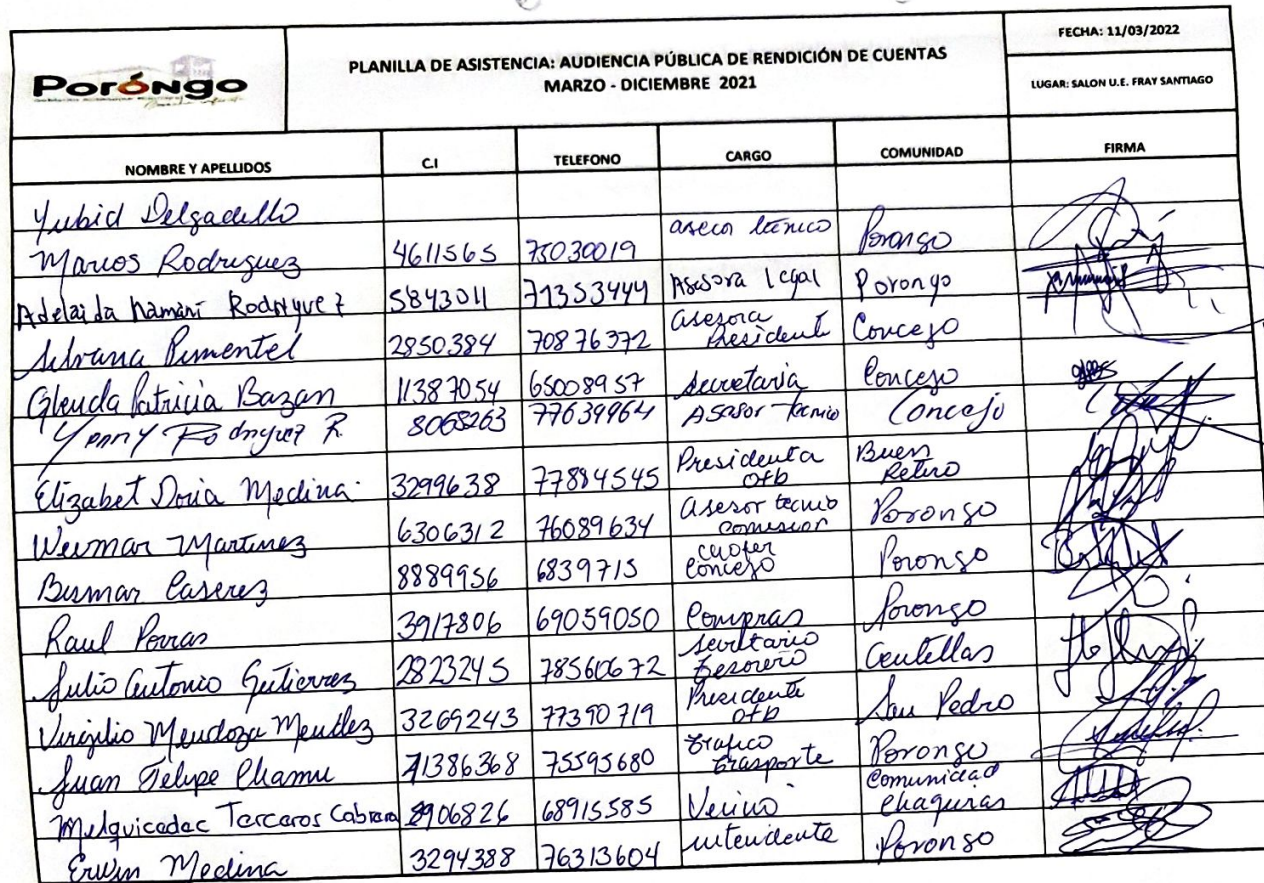 Poróngo
PLANILLA DE ASISTENCIA: AUDIENCIA PÚBLICA DE RENDICIÓN DE CUENTAS
MARZO - DICIEMBRE 2021
FECHA: 11/03/2022
LUGAR: SALON U.E. FRAY SANTIAGO
NOMBRE Y APELLIDOS C.I TELEFONO CARGO COMUNIDAD FIRMA
Yubid Delgadillo
Marios Rodriguez 4611565 75030019 asecor técnico Porongo
Adelaida Mamani Rodriguez 5843011 71353444 Asesora legal Porongo
Silvana Pimentel 2850384 70876372 asesora Presidente Concejo
Glenda Patricia Bazan 11387054 65008957 secretaria Concejo
Yenny Rodriguez R. 8068263 77639964 Asasor tecnio Concejo
Elizabet Doria Medina 3299638 77884545 Presidenta otb Buen Retiro
Weimar Martinez 6306312 76089634 asesor tecnio comision Porongo
Bismar Caserez 8889956 6839715 chofer Concejo Porongo
Raul Porras 3917806 69059050 Compras Porongo
Julio Antonio Gutierrez 2823245 78560672 secretario tesorero Centellas
Virgilio Mendoza Mendez 3269243 77390719 Presidente otb San Pedro
Juan Felipe Chamu 71386368 75595680 trafico trasporte Porongo
Melquicedec Terceros Cabrera 8906826 68915585 Vecino Comunidad Chaquiras
Erwin Medina 3294388 76313604 intendente Porongo